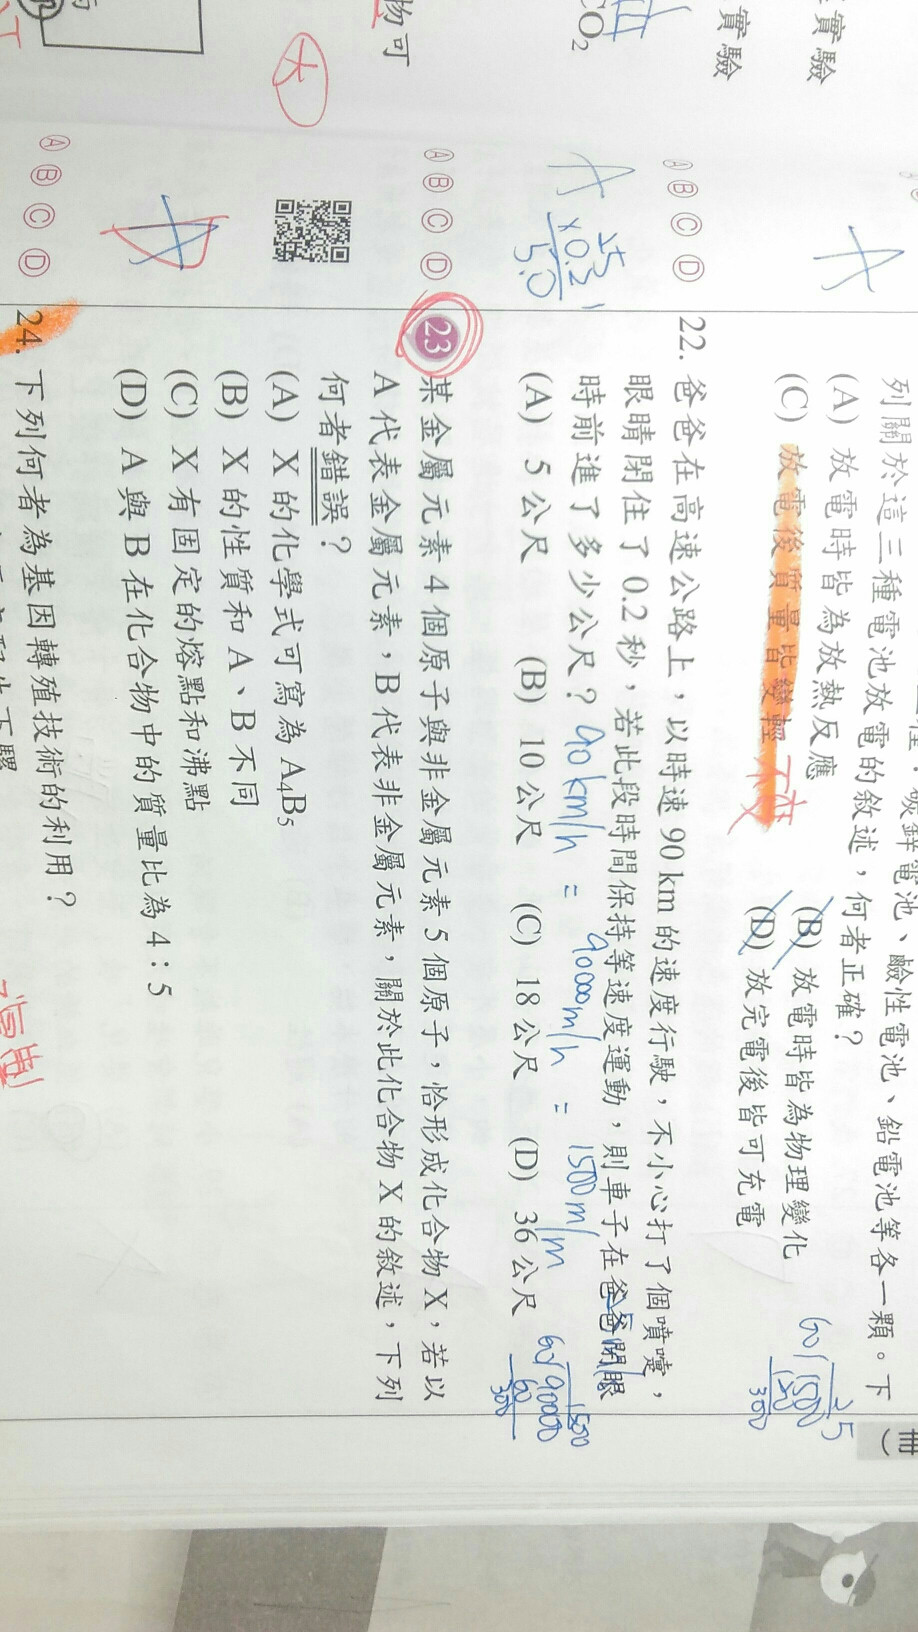 實驗
實驗
CO2
物可
大
A
Ⓐ Ⓑ Ⓒ Ⓓ
A
25
×0.2
5.0
Ⓐ Ⓑ Ⓒ Ⓓ
Ⓐ Ⓑ Ⓒ Ⓓ
冊)
碳鋅電池、鹼性電池、鉛電池等各一顆。下
列關於這三種電池放電的敘述，何者正確？
(A) 放電時皆為放熱反應 (B) 放電時皆為物理變化
(C) 放電後質量皆變輕 不變 (D) 放完電後皆可充電
22. 爸爸在高速公路上，以時速 90 km 的速度行駛，不小心打了個噴嚏，
眼睛閉住了 0.2 秒，若此段時間保持等速度運動，則車子在爸爸閉眼
時前進了多少公尺？ 90 km/h = 90000 m/h = 1500 m/m
(A) 5 公尺 (B) 10 公尺 (C) 18 公尺 (D) 36 公尺
25
60)1500
300
1500
60)90000
60
300
23 某金屬元素 4 個原子與非金屬元素 5 個原子，恰形成化合物 X，若以
A 代表金屬元素，B 代表非金屬元素，關於此化合物 X 的敘述，下列
何者錯誤？
(A) X 的化學式可寫為 A4B5
(B) X 的性質和 A、B 不同
(C) X 有固定的熔點和沸點
(D) A 與 B 在化合物中的質量比為 4：5
24. 下列何者為基因轉殖技術的利用？